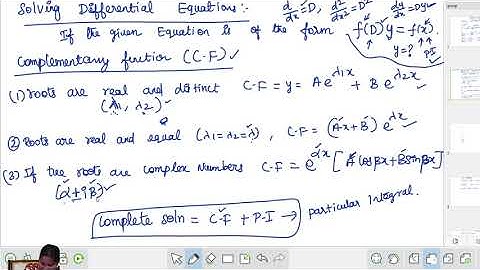 Solving Differential Equations:- d/dx = D, d²/dx² = D² dy/dx = Dy
If the given Equation is of the form f(D)y = f(x).
y=? P.I
Complementary function (C.F)
(1) Roots are real and distinct C.F = y = A e^{λ1x} + B e^{λ2x}
(λ1, λ2)
(2) Roots are real and equal (λ1=λ2=λ), C.F = (Ax+B) e^{λx}
(3) If the roots are complex numbers C.F = e^{αx} [A cos βx + B sin βx]
(α±iβ)
complete soln = C.F + P.I → particular Integral.